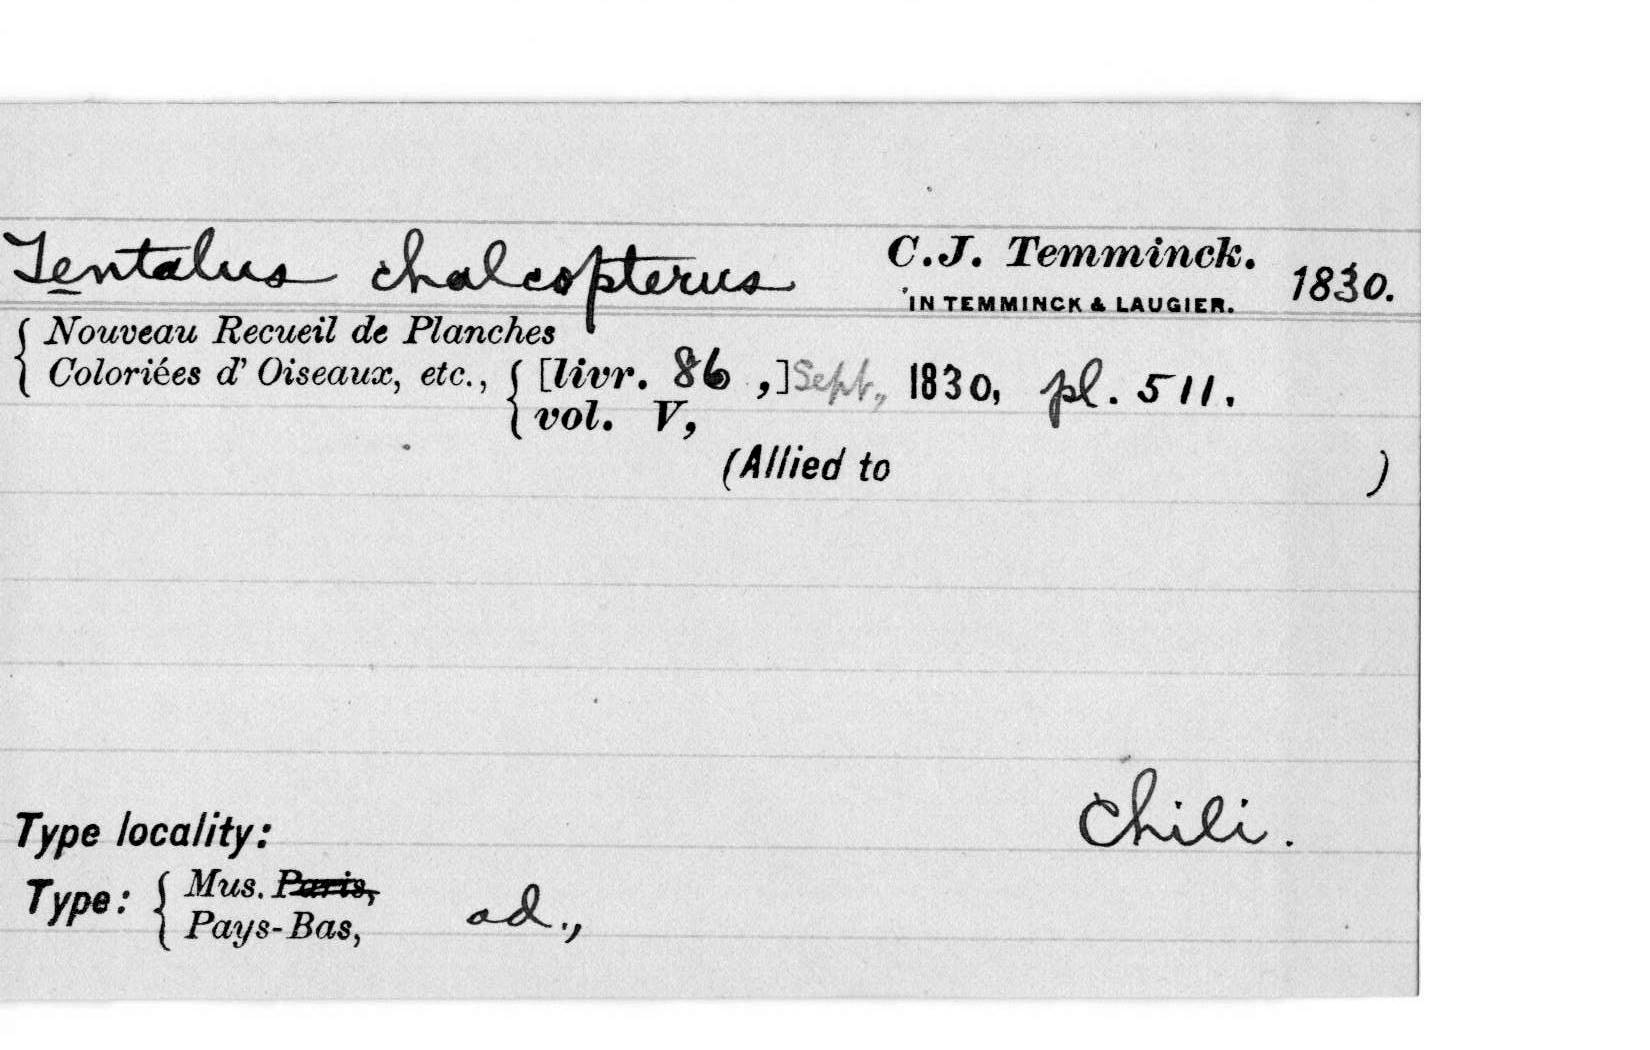 Tentalus chalcopterus C.J. Temminck. 1830.
IN TEMMINCK & LAUGIER.
Nouveau Recueil de Planches
Coloriées d' Oiseaux, etc., [livr. 86 ,] Sept., 1830, pl. 511.
vol. V,
(Allied to )
Chili.
Type locality:
Type: Mus. Paris,
Pays-Bas, ad.,